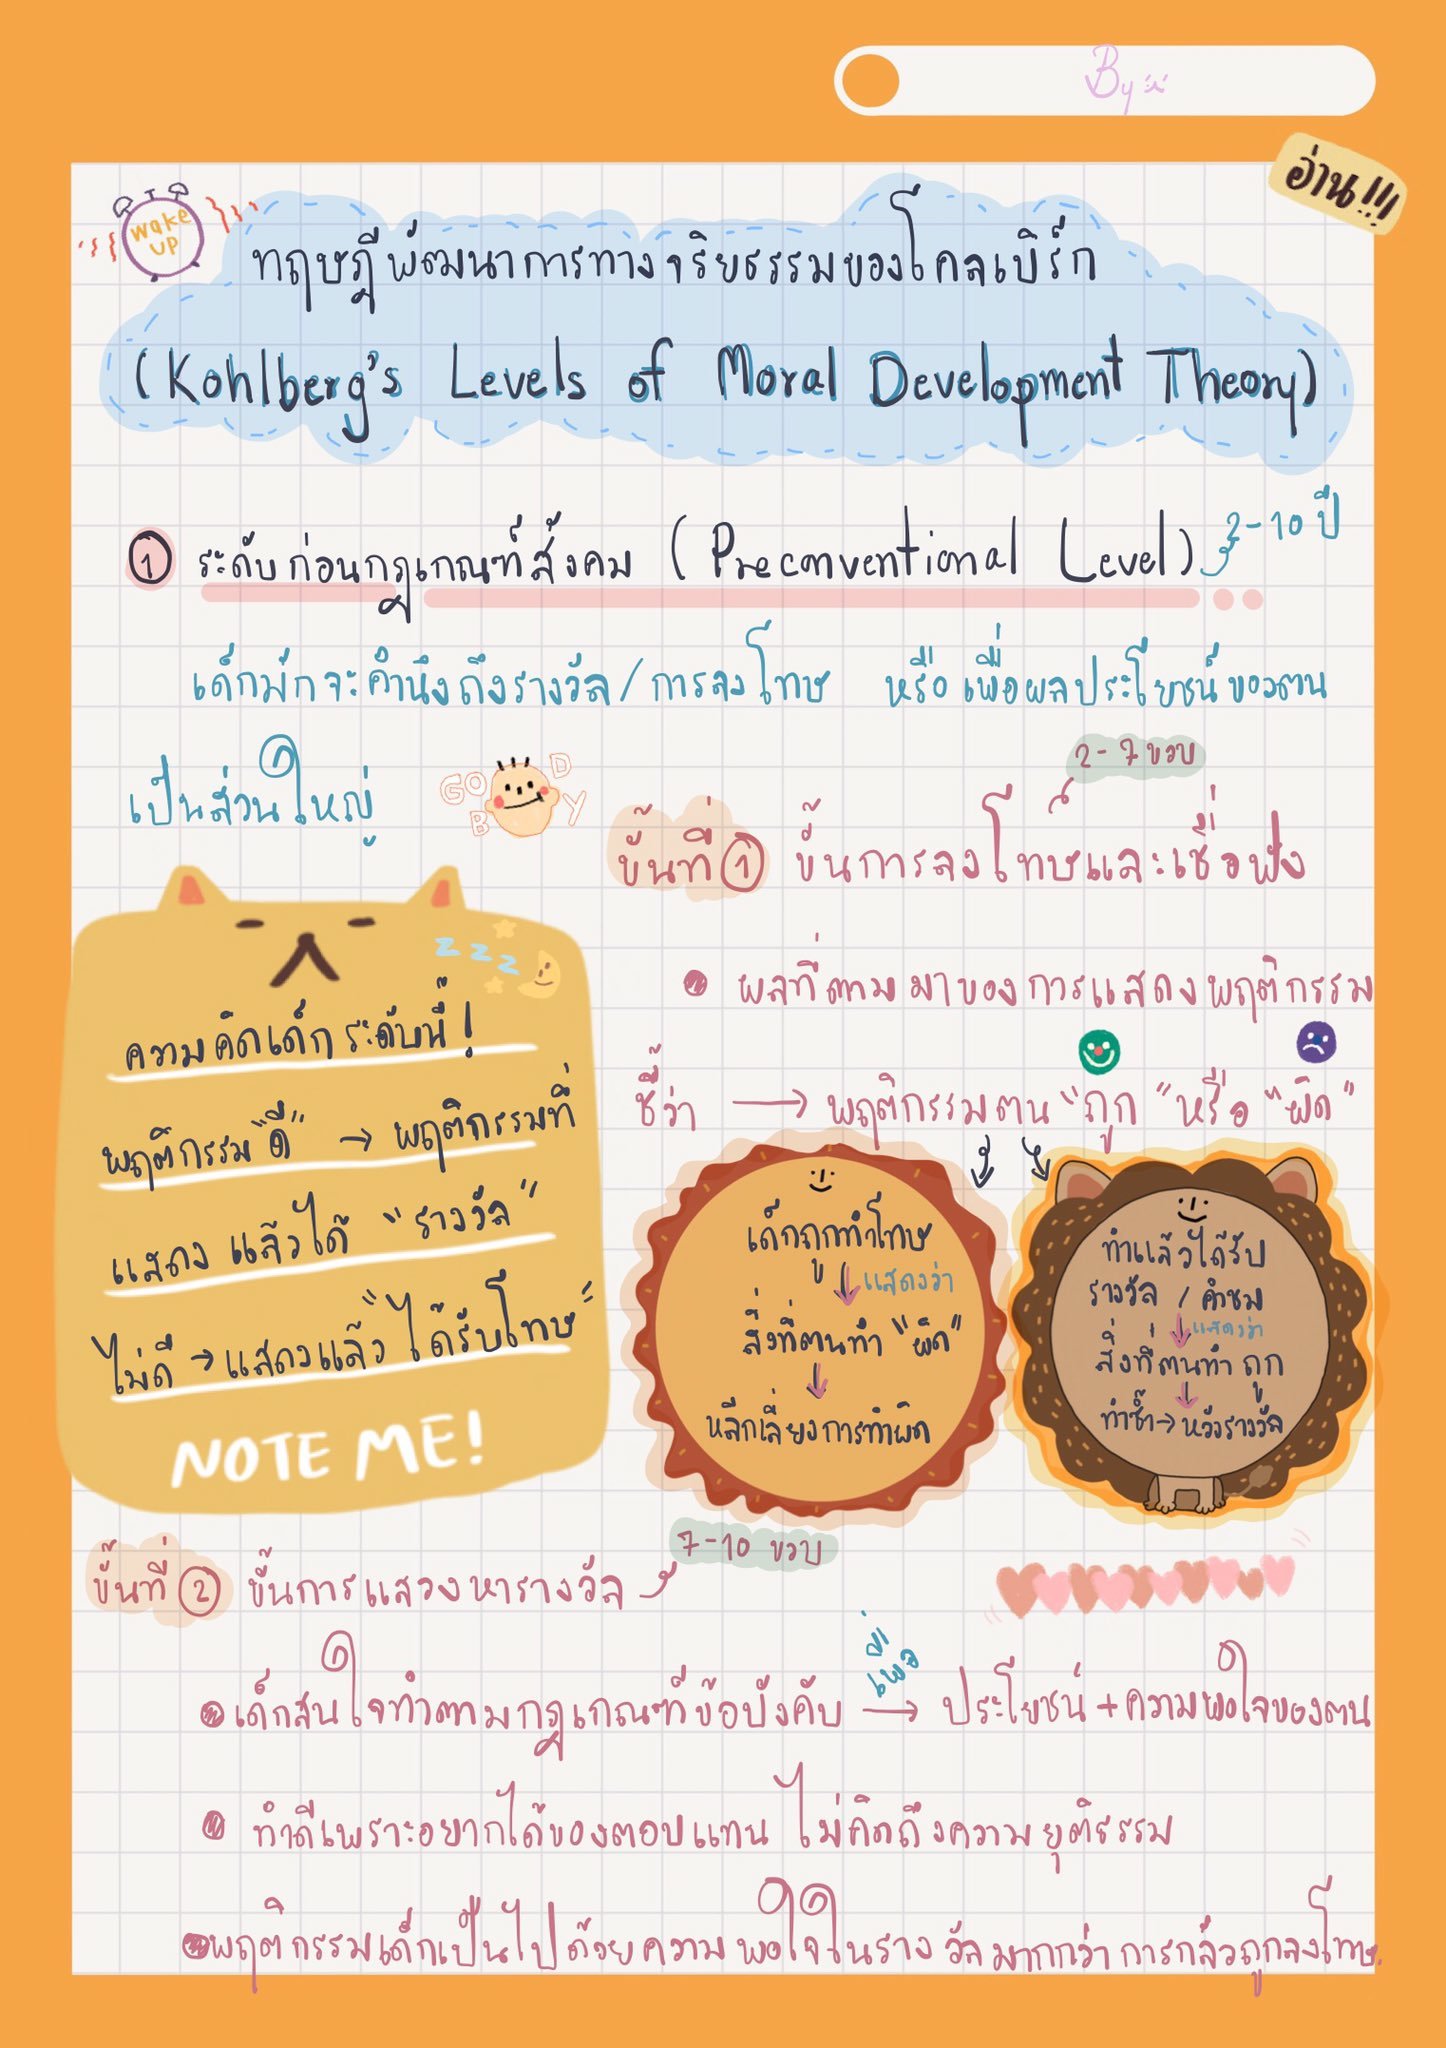 By
อ่าน!!!
wake
UP
ทฤษฎีพัฒนาการทางจริยธรรมของโคลเบิร์ก
(Kohlberg's Levels of Moral Development Theory)
① ระดับก่อนกฎเกณฑ์สังคม (Preconventional Level) 2-10 ปี
เด็กมักจะคำนึงถึงรางวัล/การลงโทษ หรือเพื่อผลประโยชน์ของตน
เป็นส่วนใหญ่
GOOD
BOY
2-7 ขวบ
ขั้นที่ ① ขั้นการลงโทษและเชื่อฟัง
• ผลที่ตามมาของการแสดงพฤติกรรม
ชี้ว่า → พฤติกรรมตน "ถูก" หรือ "ผิด"
zzz
ความคิดเด็กระดับนี้!
พฤติกรรม "ดี" → พฤติกรรมที่
แสดงแล้วได้ "รางวัล"
ไม่ดี → แสดงแล้ว "ได้รับโทษ"
NOTE ME!
เด็กถูกทำโทษ
↓ แสดงว่า
สิ่งที่ตนทำ "ผิด"
↓
หลีกเลี่ยงการทำผิด
ทำแล้วได้รับ
รางวัล / คำชม
↓ แสดงว่า
สิ่งที่ตนทำ ถูก
↓
ทำซ้ำ → หวังรางวัล
7-10 ขวบ
ขั้นที่ ② ขั้นการแสวงหารางวัล
• เด็กสนใจทำตามกฎเกณฑ์ข้อบังคับ เพื่อ → ประโยชน์ + ความพอใจของตน
• ทำดีเพราะอยากได้ของตอบแทน ไม่คิดถึงความยุติธรรม
• พฤติกรรมเด็กเป็นไปด้วยความพอใจในรางวัลมากกว่าการกลัวถูกลงโทษ.